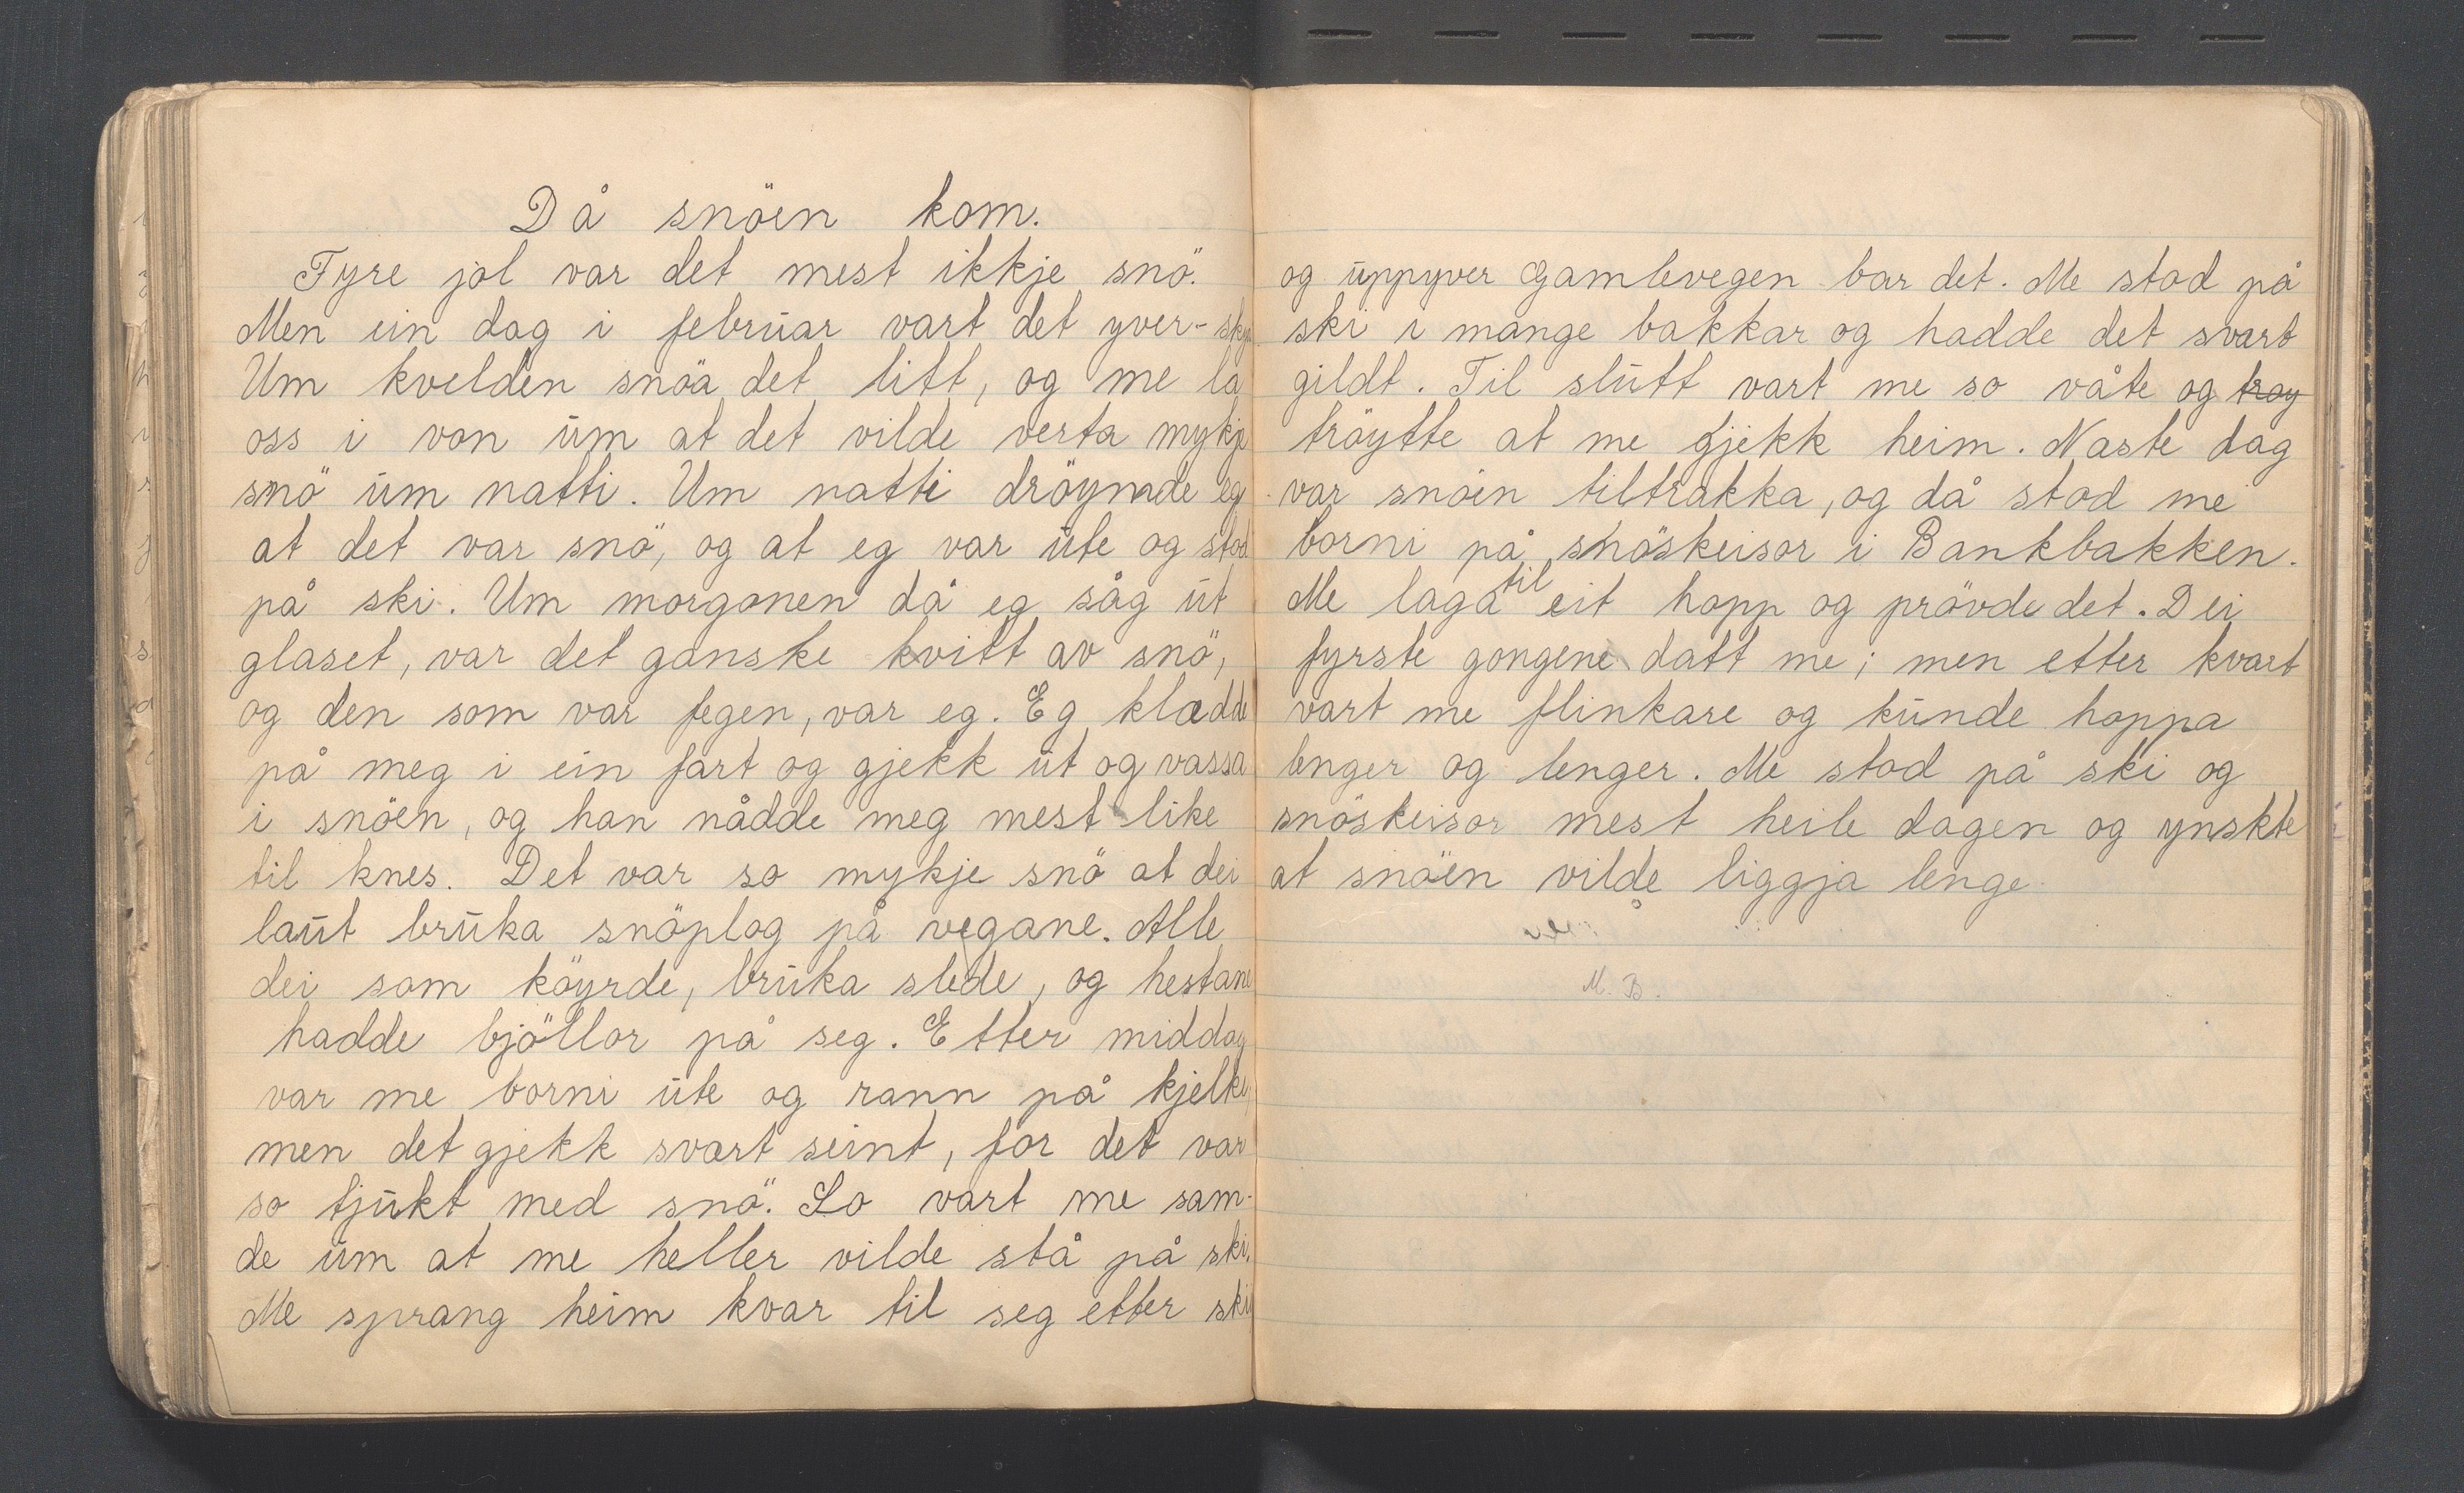 Då snöen kom.
Fyre jol var det mest ikkje snö.
Men ein dag i februar vart det yver-sky
Um kvelden snöa det litt, og me la
oss i von um at det vilde verta mykje
snö um natti. Um natti dröymde eg
at det var snö, og at eg var ute og stod
på ski. Um morgonen då eg såg ut
glaset, var det ganske kvitt av snö,
og den som var fegen, var eg. Eg klædde
på meg i ein fart og gjekk ut og vassa
i snöen, og han nådde meg mest like
til knes. Det var so mykje snö at dei
laut bruka snöplog på vegane. Alle
dei som köyrde, bruka slede, og hestane
hadde bjöllor på seg. Etter middag
var me borni ute og rann på kjelke,
men det gjekk svært seint, for det var
so tjukt med snö. So vart me sam-
de um at me heller vilde stå på ski.
Me sprang heim kvar til seg etter ski
og uppyver Gamlevegen bar det. Me stod på
ski i mange bakkar og hadde det svært
gildt. Til slutt vart me so våte og tröy
tröytte at me gjekk heim. Næste dag
var snöen tiltrakka, og då stod me
borni på snöskeisor i Bankbakken.
Me laga til eit hopp og prövde det. Dei
fyrste gongene datt me; men etter kvart
vart me flinkare og kunde hoppa
lenger og lenger. Me stod på ski og
snöskeisor mest heile dagen og ynskte
at snöen vilde liggja lenge.
M. B.